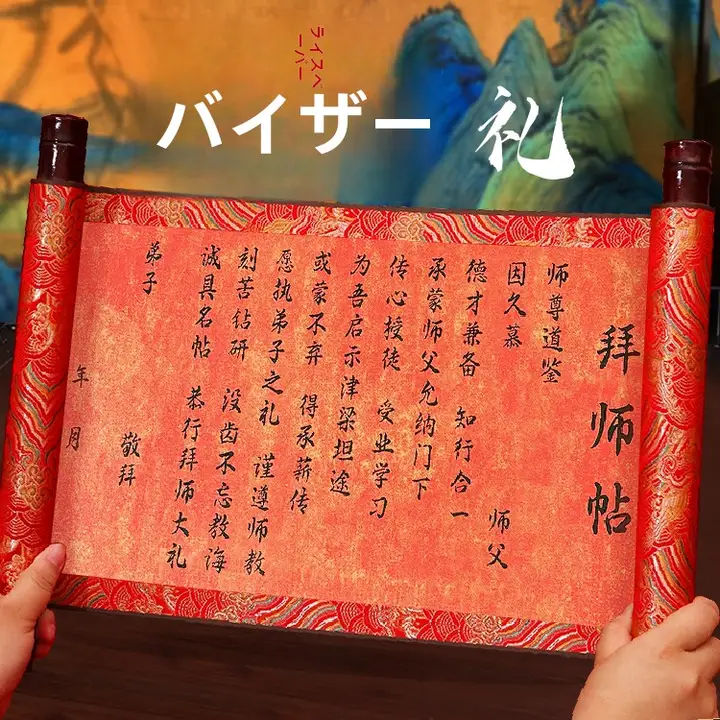 ライスペーパー
バイザー 礼
拜师帖
师尊道鉴
因久慕 师父
德才兼备 知行合一
承蒙师父允纳门下
传心授徒 受业学习
为吾启示津梁坦途
或蒙不弃 得承薪传
愿执弟子之礼 谨遵师教
刻苦钻研 没齿不忘教诲
诚具名帖 恭行拜师大礼
弟子 敬拜
年 月